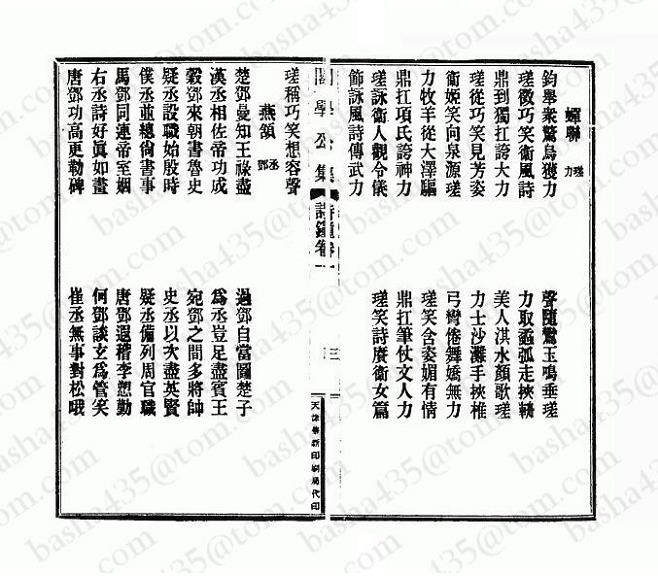 蟬聯 瑳力
鈞舉衆驚烏獲力 聲隨鸞玉鳴垂瑳
瑳徵巧笑衛風詩 力取蝥弧走挾輈
鼎到獨扛誇大力 美人淇水顏歌瑳
瑳從巧笑見芳姿 力士沙灘手挾椎
衛媛笑向泉源瑳 弓彎倦舞嬌無力
力牧羊從大澤驅 瑳笑含姿媚有情
鼎扛項氏誇神力 鼎扛筆仗文人力
瑳詠衛人觀令儀 瑳笑詩賡衛女篇
飾詠風詩傳武力
閣學公集 詩鐘卷一 三
天津華新印刷局代印
瑳稱巧笑想容聲
燕頷 丞鄧
楚鄧曼知王祿盡 過鄧自當圖楚子
漢丞相佐帝功成 爲丞豈足盡賓王
穀鄧來朝書魯史 宛鄧之間多將帥
疑丞設職始殷時 史丞以次盡英賢
僕丞並總尙書事 疑丞備列周官職
馬鄧同連帝室姻 唐鄧遐稽李愬勤
右丞詩好眞如畫 何鄧談玄爲管笑
唐鄧功高更勒碑 崔丞無事對松哦
basha435@tom.com